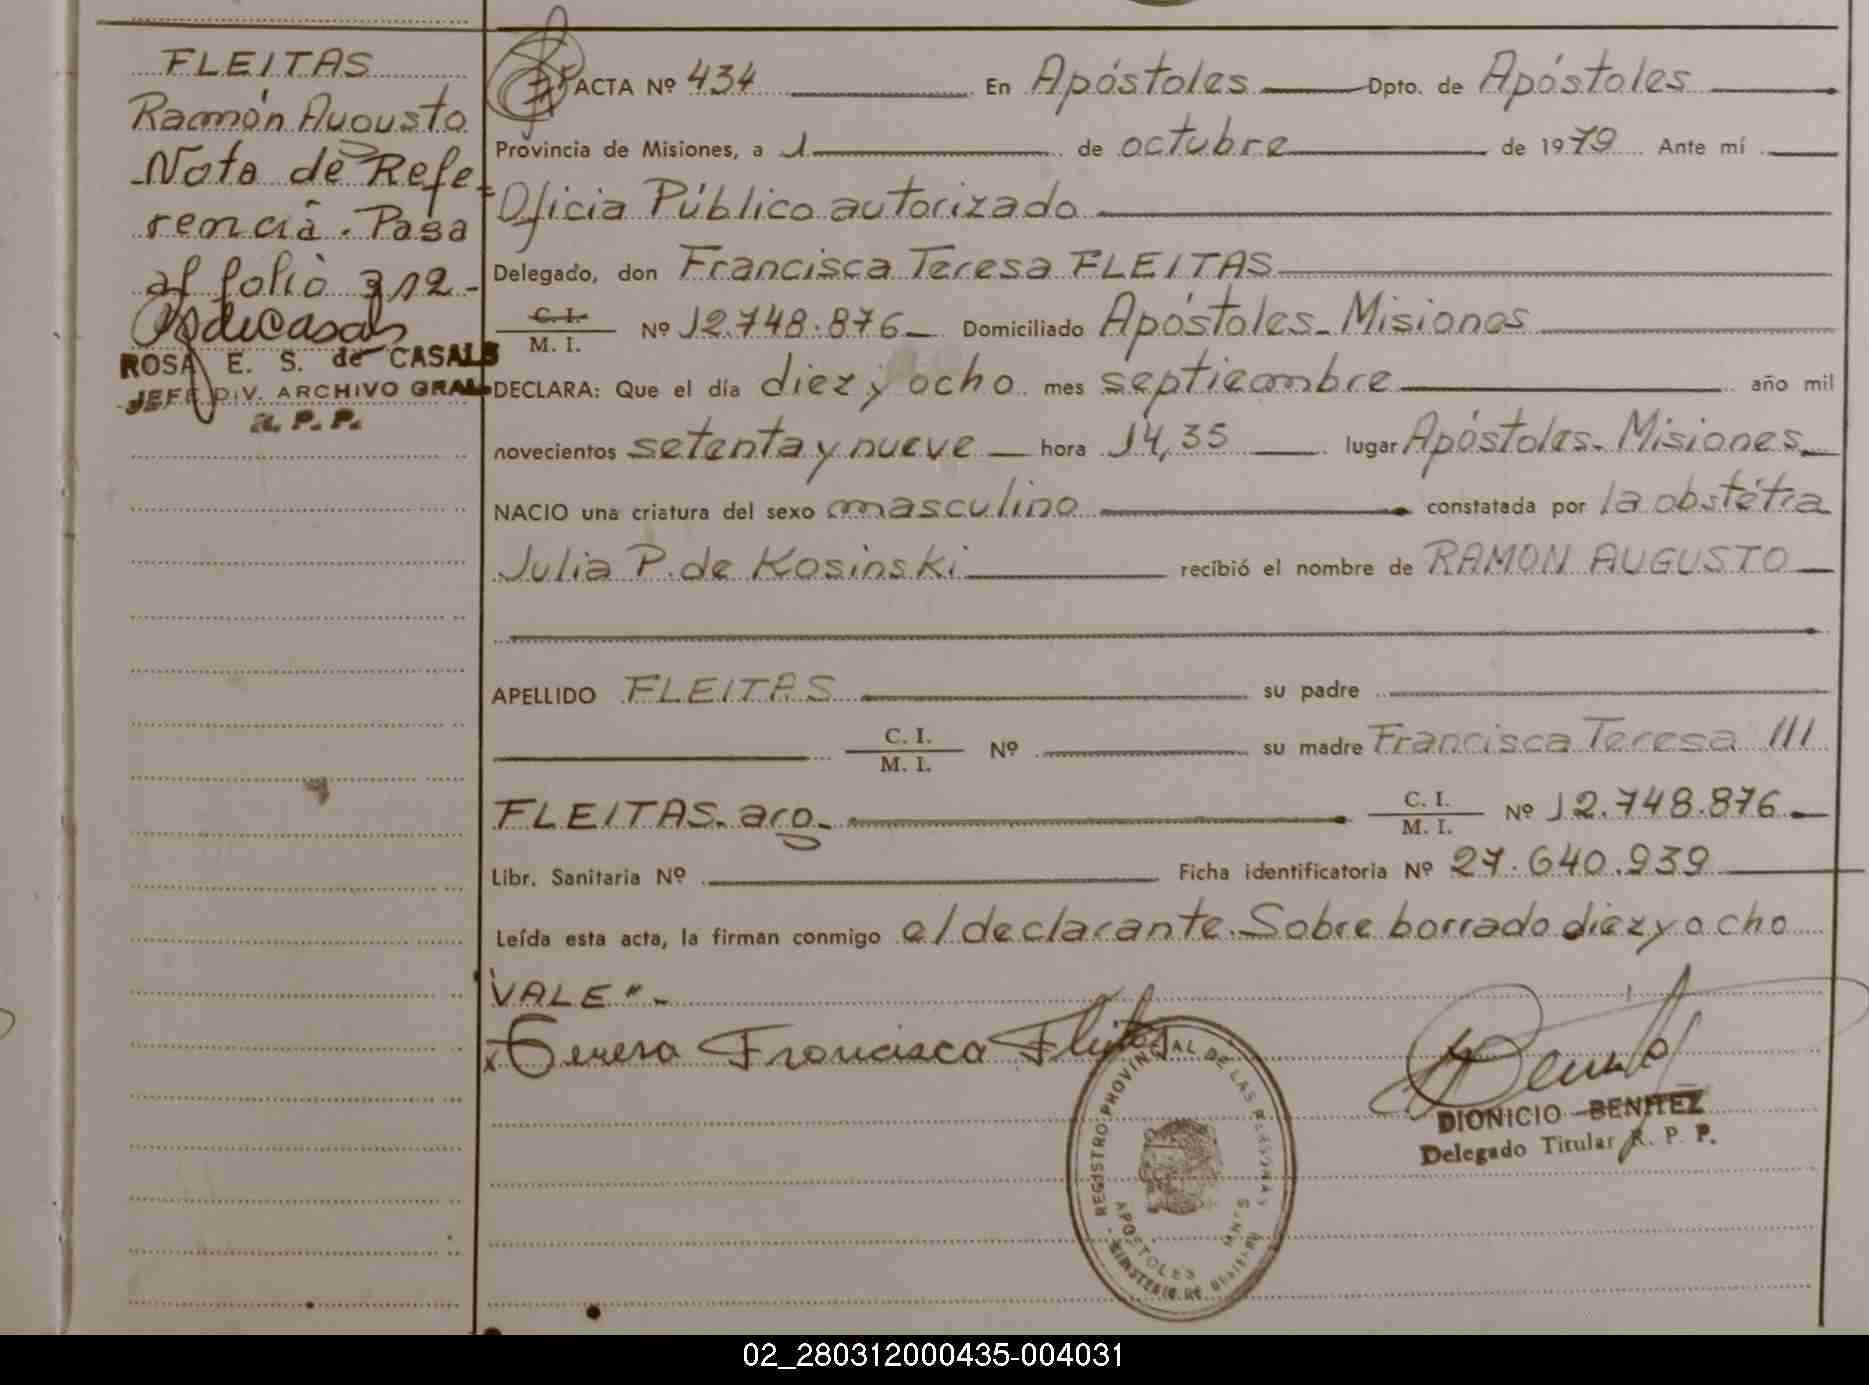 FLEITAS
Ramón Augusto
Nota de Refe-
rencia. Pasa
al folio 312.-
ROSA E. S. de CASALS
JEFE DIV. ARCHIVO GRAL.
a. P. P.
ACTA Nº 434 En Apóstoles Dpto. de Apóstoles
Provincia de Misiones, a 1 de octubre de 1979 Ante mí
Oficia Público autorizado
Delegado, don Francisca Teresa FLEITAS
C. I.
M. I. Nº 12.748.876 Domiciliado Apóstoles-Misiones
DECLARA: Que el día diez y ocho mes septiembre año mil
novecientos setenta y nueve hora 14,35 lugar Apóstoles-Misiones
NACIO una criatura del sexo masculino constatada por la obstétra
Julia P. de Kosinski recibió el nombre de RAMON AUGUSTO
APELLIDO FLEITAS su padre
C. I.
M. I. Nº su madre Francisca Teresa ///
FLEITAS-arg- C. I.
M. I. Nº 12.748.876
Libr. Sanitaria Nº Ficha identificatoria Nº 27.640.939
Leída esta acta, la firman conmigo el declarante. Sobre borrado diez y ocho
"VALE"-
x Teresa Francisca Fleitas
REGISTRO PROVINCIAL DE LAS PERSONAS
APOSTOLES MNES
DIONICIO BENITEZ
Delegado Titular R. P. P.
02_280312000435-004031